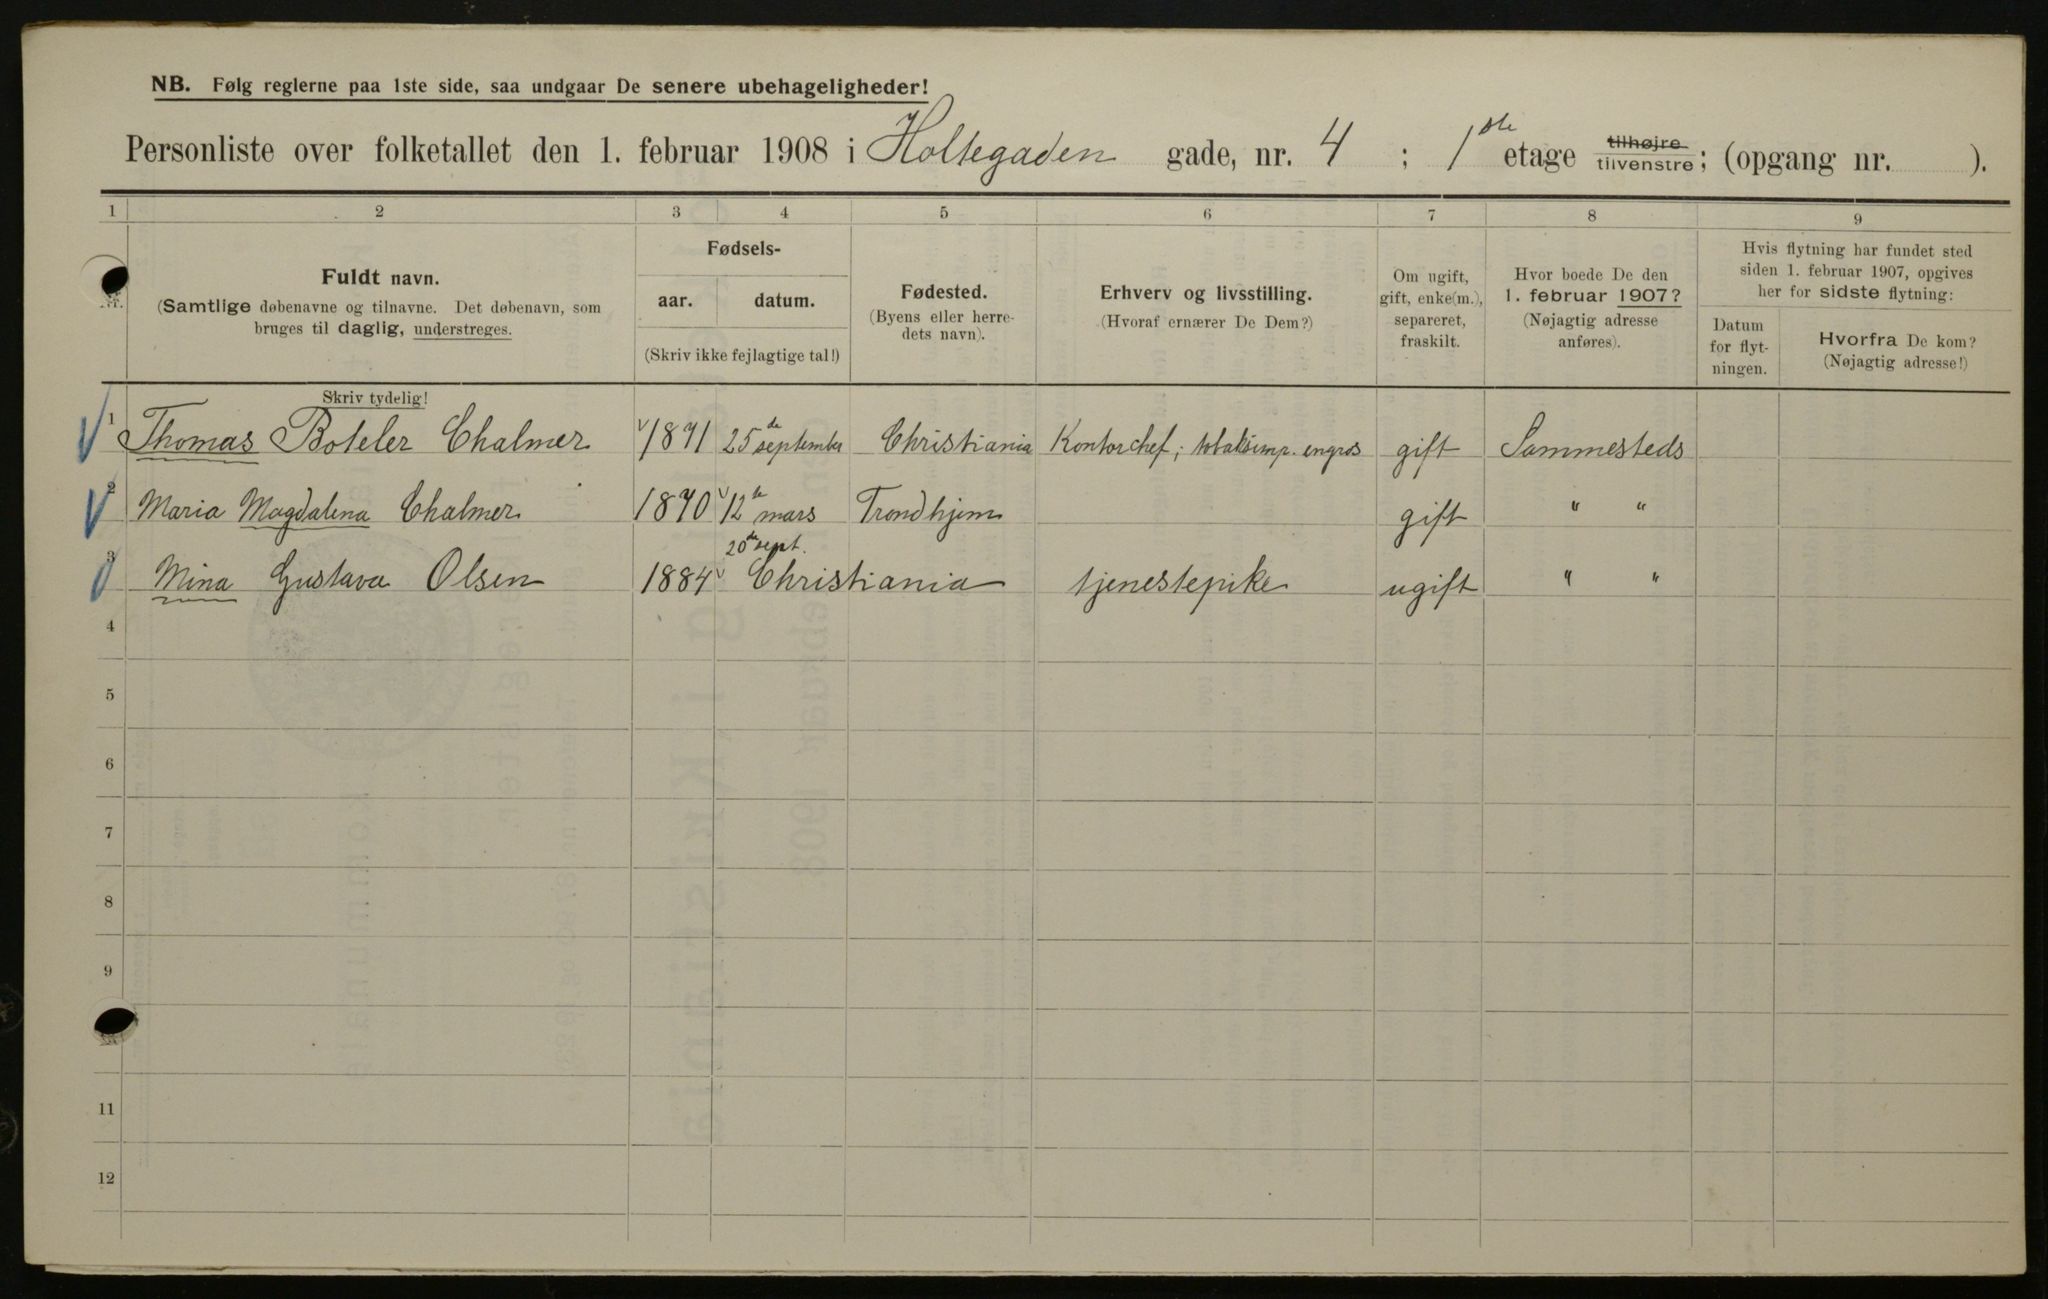 NB. Følg reglerne paa 1ste side, saa undgaar De senere ubehageligheder!
Personliste over folketallet den 1. februar 1908 i Holtegaden gade, nr. 4 ; 1ste etage tilhøjre tilvenstre; (opgang nr. ).
1 2 3 4 5 6 7 8 9
Fuldt navn.
(Samtlige døbenavne og tilnavne. Det døbenavn, som
bruges til daglig, understreges.
Fødsels-
aar. datum.
(Skriv ikke fejlagtige tal!)
Fødested.
(Byens eller herre-
dets navn).
Erhverv og livsstilling.
(Hvoraf ernærer De Dem?)
Om ugift,
gift, enke(m.),
separeret,
fraskilt.
Hvor boede De den
1. februar 1907?
(Nøjagtig adresse
anføres).
Hvis flytning har fundet sted
siden 1. februar 1907, opgives
her for sidste flytning:
Datum
for flyt-
ningen.
Hvorfra De kom?
(Nøjagtig adresse!)
Skriv tydelig!
1 Thomas Boteler Chalmer 1871 25de september Christiania Kontorchef; tobaksimp. engros gift Sammesteds
2 Maria Magdalena Chalmer 1870 12te mars Trondhjem gift " "
20de sept.
3 Mina Gustava Olsen 1884 Christiania tjenestepike ugift " "
4
5
6
7
8
9
11
12